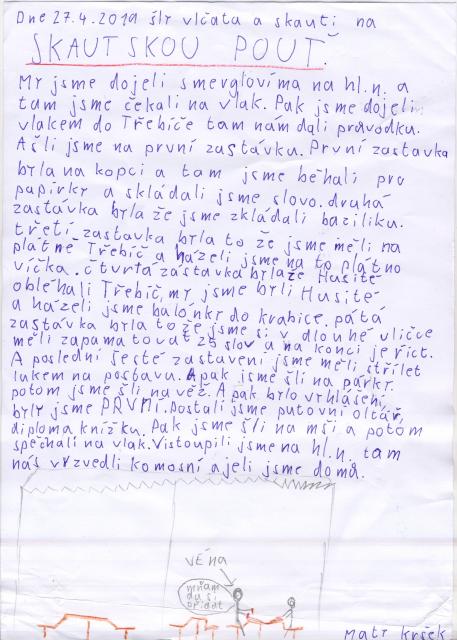 Dne 27.4.2019 šly vlčata a skauti na
SKAUTSKOU POUŤ.
My jsme dojeli smevglovíma na hl.n. a
tam jsme čekali na vlak. Pak jsme dojeli
vlakem do Třebíče tam nám dali průvodku.
A šli jsme na první zastávku. První zastavka
byla na kopci a tam jsme běhali pro
papírky a skládali jsme slovo. druhá
zastávka byla že jsme zkládali baziliku.
třetí zastavka byla to že jsme měli na
plátně Třebíč a házeli jsme na to plátno
víčka. čtvrtá zastavka byla že Husité
obléhali Třebíč, my jsme byli Husité
a házeli jsme balónky do krabice. pátá
zastávka byla to že jsme si v dlouhé uličce
měli zapamatovat 25 slov a na konci je říct.
A poslední šesté zastavení jsme měli střílet
lukem na postavu. A pak jsme šli na párky.
potom jsme šli na věž. A pak bylo vyhlášení,
byly jsme PRVNÍ. Dostali jsme putovní oltář,
diploma knížku. Pak jsme šli na mši a potom
spěchali na vlak. Vistoupili jsme na hl.n. tam
nás vyzvedli komosní a jeli jsme domů.
věna
mňam
du si
přidat
Maty kršek